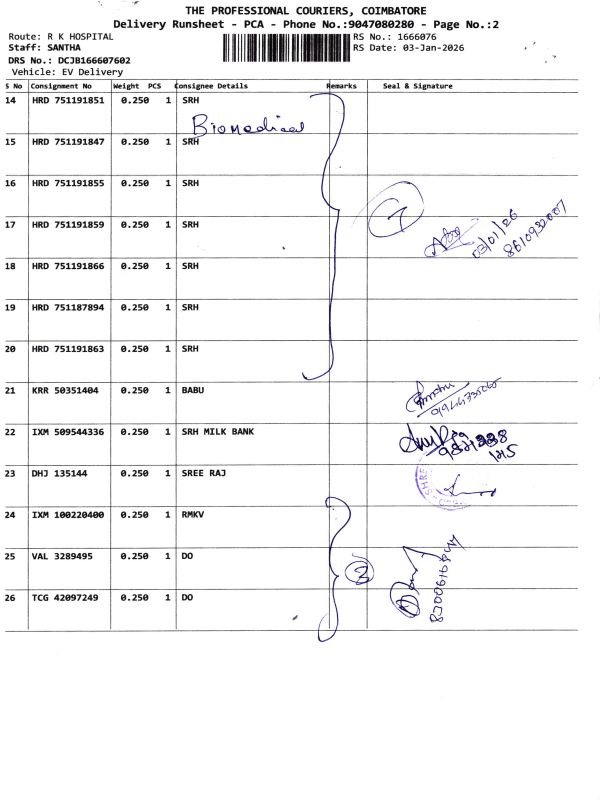 THE PROFESSIONAL COURIERS, COIMBATORE
Delivery Runsheet - PCA - Phone No.:9047080280 - Page No.:2
Route: R K HOSPITAL
RS No.: 1666076
Staff: SANTHA
RS Date: 03-Jan-2026
DRS No.: DCJB166607602
Vehicle: EV Delivery
S No Consignment No Weight PCS Consignee Details Remarks Seal & Signature
14 HRD 751191851 0.250 1 SRH
Biomedical
15 HRD 751191847 0.250 1 SRH
16 HRD 751191855 0.250 1 SRH
7
17 HRD 751191859 0.250 1 SRH
03/01/26
8610932007
18 HRD 751191866 0.250 1 SRH
19 HRD 751187894 0.250 1 SRH
20 HRD 751191863 0.250 1 SRH
21 KRR 50351404 0.250 1 BABU
22 IXM 509544336 0.250 1 SRH MILK BANK
23 DHJ 135144 0.250 1 SREE RAJ
SHREE
24 IXM 100220400 0.250 1 RMKV
25 VAL 3289495 0.250 1 DO
3
26 TCG 42097249 0.250 1 DO